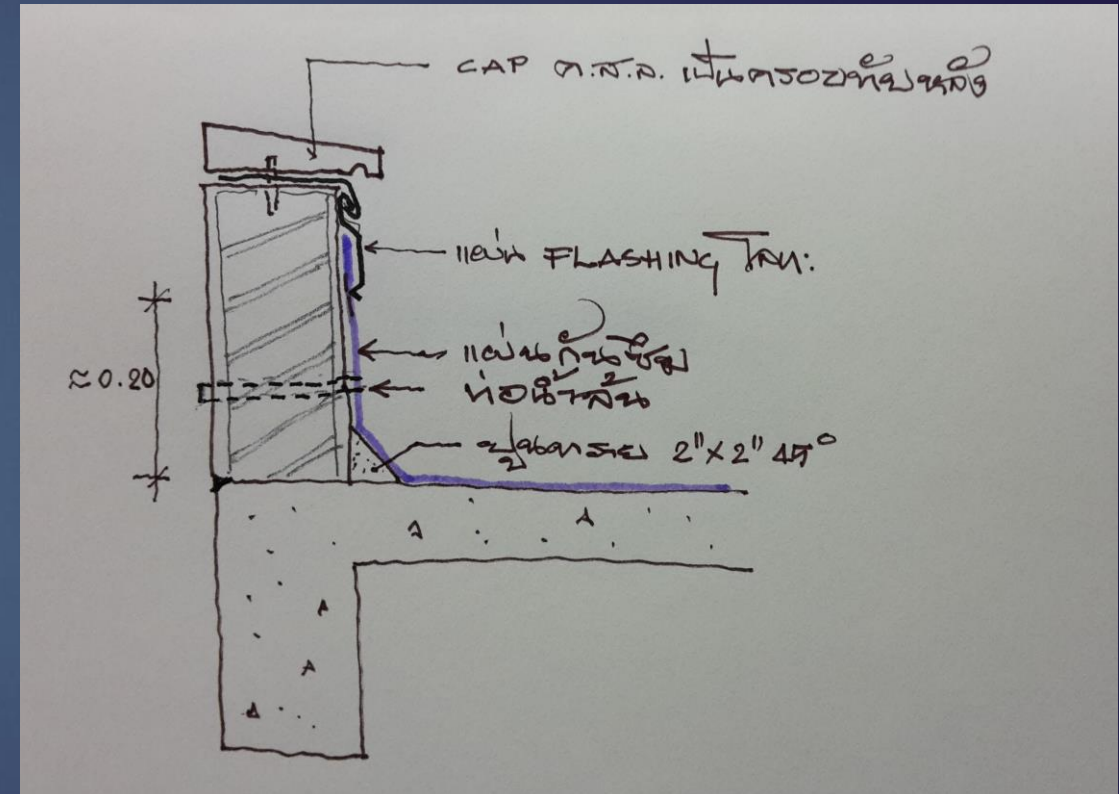 CAP ค.ส.ล. เป็นครอบทับหลัง
แผ่น FLASHING โลหะ
แผ่นกันซึม
≈ 0.20
ท่อน้ำล้น
ปูนทราย 2"x2" 45°